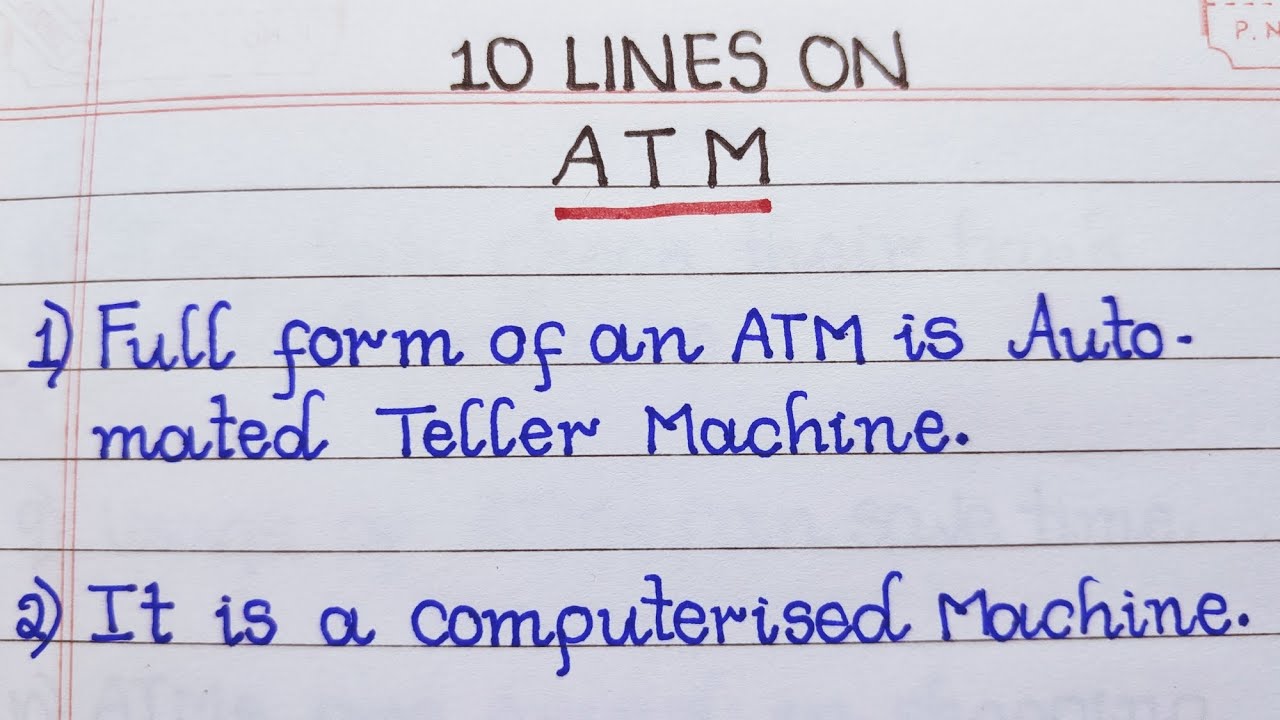 P.N
10 LINES ON
ATM
1) Full form of an ATM is Auto-
mated Teller Machine.
2) It is a computerised Machine.